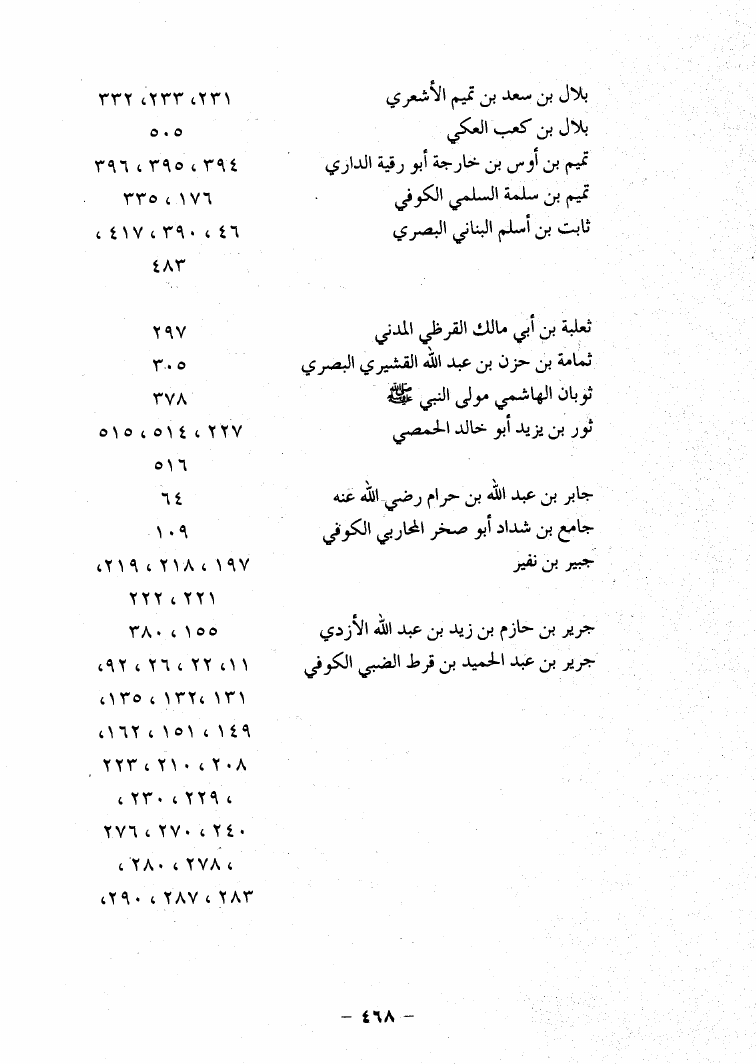 بلال بن سعد بن تميم الأشعري ٢٣١، ٢٣٣، ٣٣٢
بلال بن كعب العكي ٥٠٥
تميم بن أوس بن خارجة أبو رقية الداري ٣٩٤ ، ٣٩٥ ، ٣٩٦
تميم بن سلمة السلمي الكوفي ١٧٦ ، ٣٣٥
ثابت بن أسلم البناني البصري ٤٦ ، ٣٩٠ ، ٤١٧ ،
٤٨٣
ثعلبة بن أبي مالك القرظي المدني ٢٩٧
ثمامة بن حزن بن عبد الله القشيري البصري ٣٠٥
ثوبان الهاشمي مولى النبي ﷺ ٣٧٨
ثور بن يزيد أبو خالد الحمصي ٢٢٧ ، ٥١٤ ، ٥١٥
٥١٦
جابر بن عبد الله بن حرام رضي الله عنه ٦٤
جامع بن شداد أبو صخر المحاربي الكوفي ١٠٩
جبير بن نفير ١٩٧ ، ٢١٨ ، ٢١٩،
٢٢١ ، ٢٢٢
جرير بن حازم بن زيد بن عبد الله الأزدي ١٥٥ ، ٣٨٠
جرير بن عبد الحميد بن قرط الضبي الكوفي ١١، ٢٢ ، ٢٦ ، ٩٢،
١٣١ ،١٣٢ ، ١٣٥،
١٤٩ ، ١٥١ ، ١٦٢،
٢٠٨ ، ٢١٠ ، ٢٢٣
، ٢٢٩ ، ٢٣٠ ،
٢٤٠ ، ٢٧٠ ، ٢٧٦
، ٢٧٨ ، ٢٨٠ ،
٢٨٣ ، ٢٨٧ ، ٢٩٠،
- ٤٦٨ -